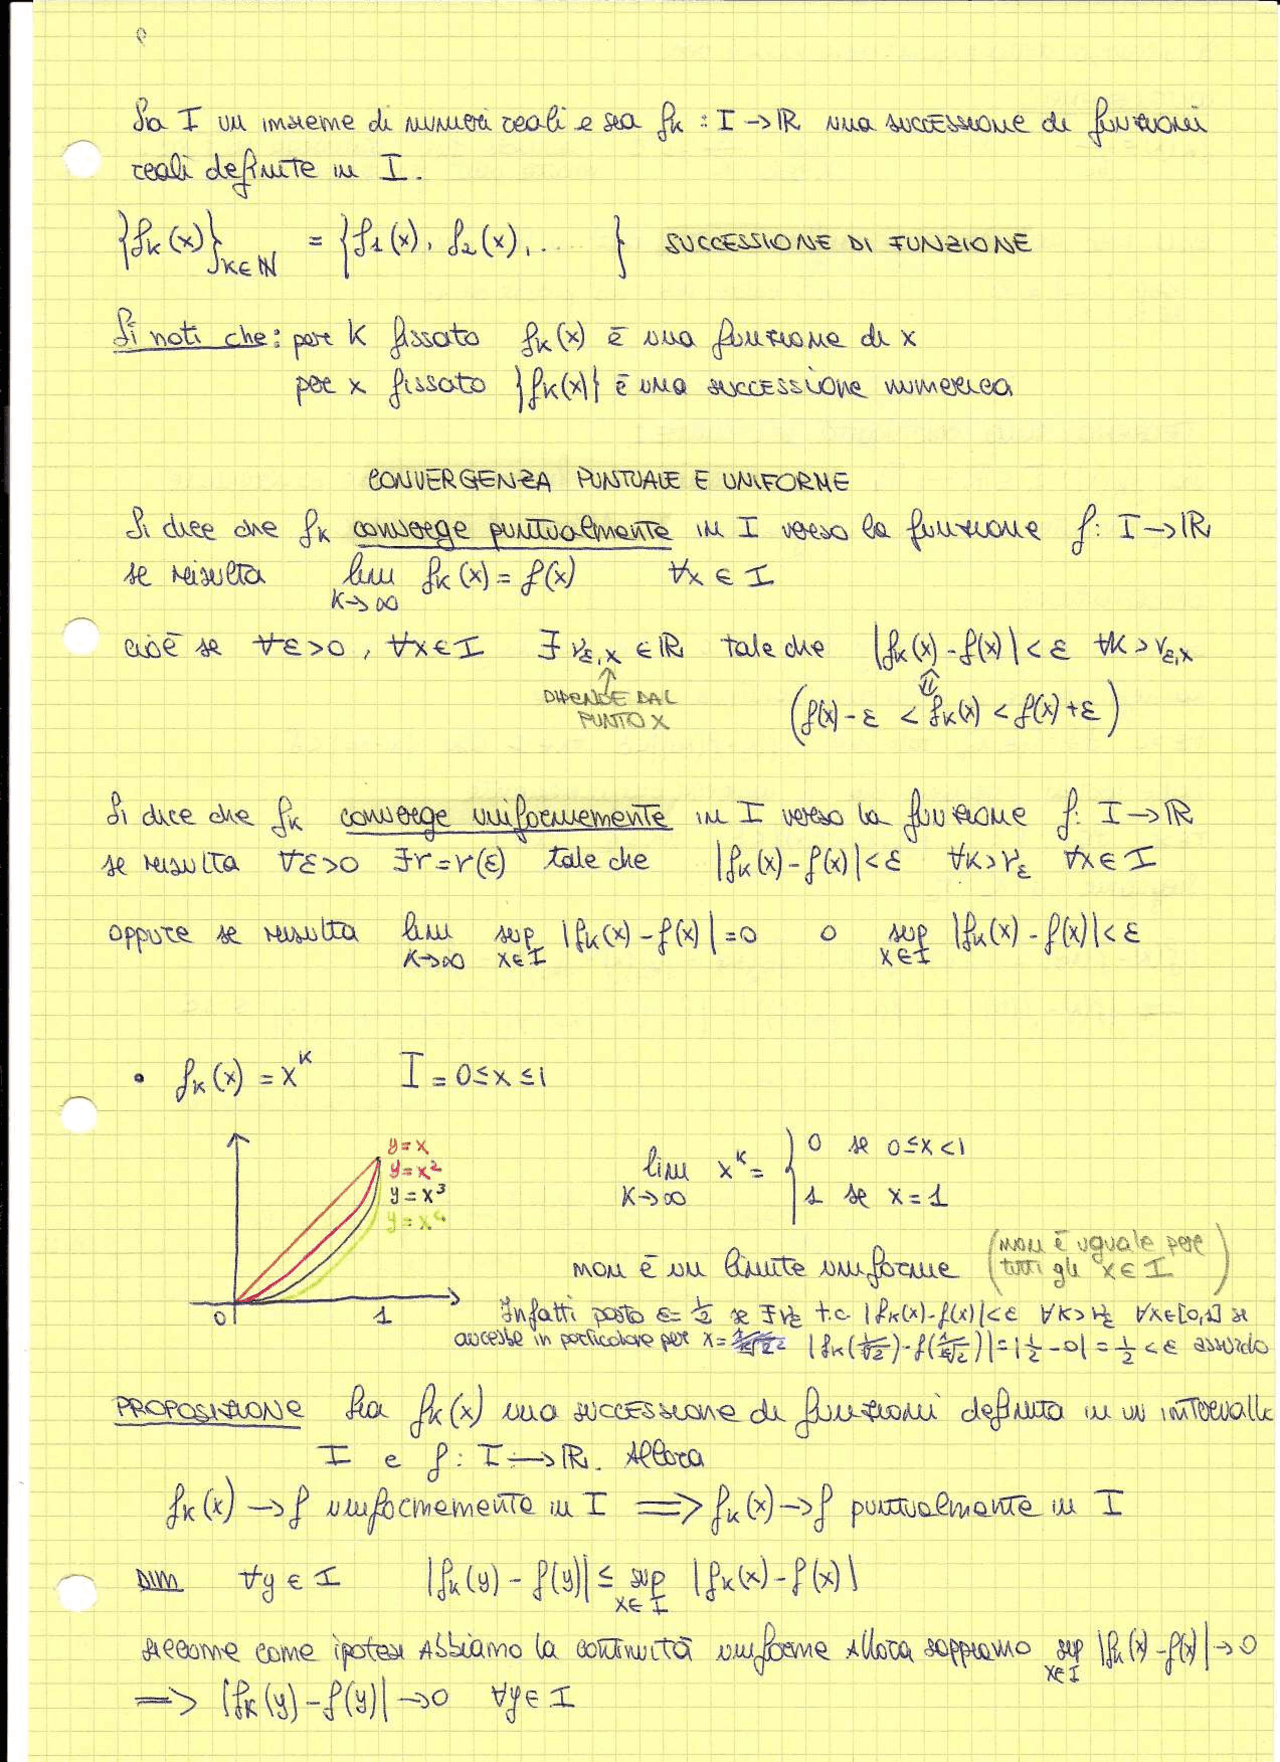 Sia I un insieme di numeri reali e sia fk : I → ℝ una successione di funzioni
reali definite in I.
{fk(x)}k∈ℕ = {f1(x), f2(x), ...... } SUCCESSIONE DI FUNZIONE
Si noti che: per K fissato fk(x) è una funzione di x
per x fissato {fk(x)} è una successione numerica
CONVERGENZA PUNTUALE E UNIFORME
Si dice che fk converge puntualmente in I verso la funzione f: I → ℝ
se risulta lim K→∞ fk(x) = f(x) ∀x ∈ I
cioè se ∀ε>0, ∀x∈I ∃ νε,x ∈ℝ tale che |fk(x) - f(x)| < ε ∀K > νε,x
↑ ⇕
DIPENDE DAL PUNTO X
(f(x) - ε < fk(x) < f(x) + ε)
Si dice che fk converge uniformemente in I verso la funzione f: I → ℝ
se risulta ∀ε>0 ∃ν=ν(ε) tale che |fk(x) - f(x)| < ε ∀K>νε ∀x∈I
oppure se risulta lim K→∞ sup x∈I |fk(x) - f(x)| = 0 o sup x∈I |fk(x) - f(x)| < ε
• fk(x) = x^K I = 0≤x≤1
y=x
y=x²
y=x³
y=x⁴
0 1
lim K→∞ x^K = { 0 se 0≤x<1
1 se x=1
non è un limite uniforme (non è uguale per tutti gli x∈I)
Infatti posto ε=1/2 se ∃νε t.c. |fk(x)-f(x)|<ε ∀K>νε ∀x∈[0,1] se
avrebbe in particolare per x= |fk()-f()|=|1/2-0|=1/2<ε assurdo
PROPOSIZIONE Sia fk(x) una successione di funzioni definita in un intervallo
I e f: I → ℝ. Allora
fk(x) → f uniformemente in I ⟹ fk(x) → f puntualmente in I
DIM ∀y∈I |fk(y) - f(y)| ≤ sup x∈I |fk(x) - f(x)|
siccome come ipotesi abbiamo la continuità uniforme allora sappiamo sup x∈I |fk(x) - f(x)| → 0
⟹ |fk(y) - f(y)| → 0 ∀y∈I